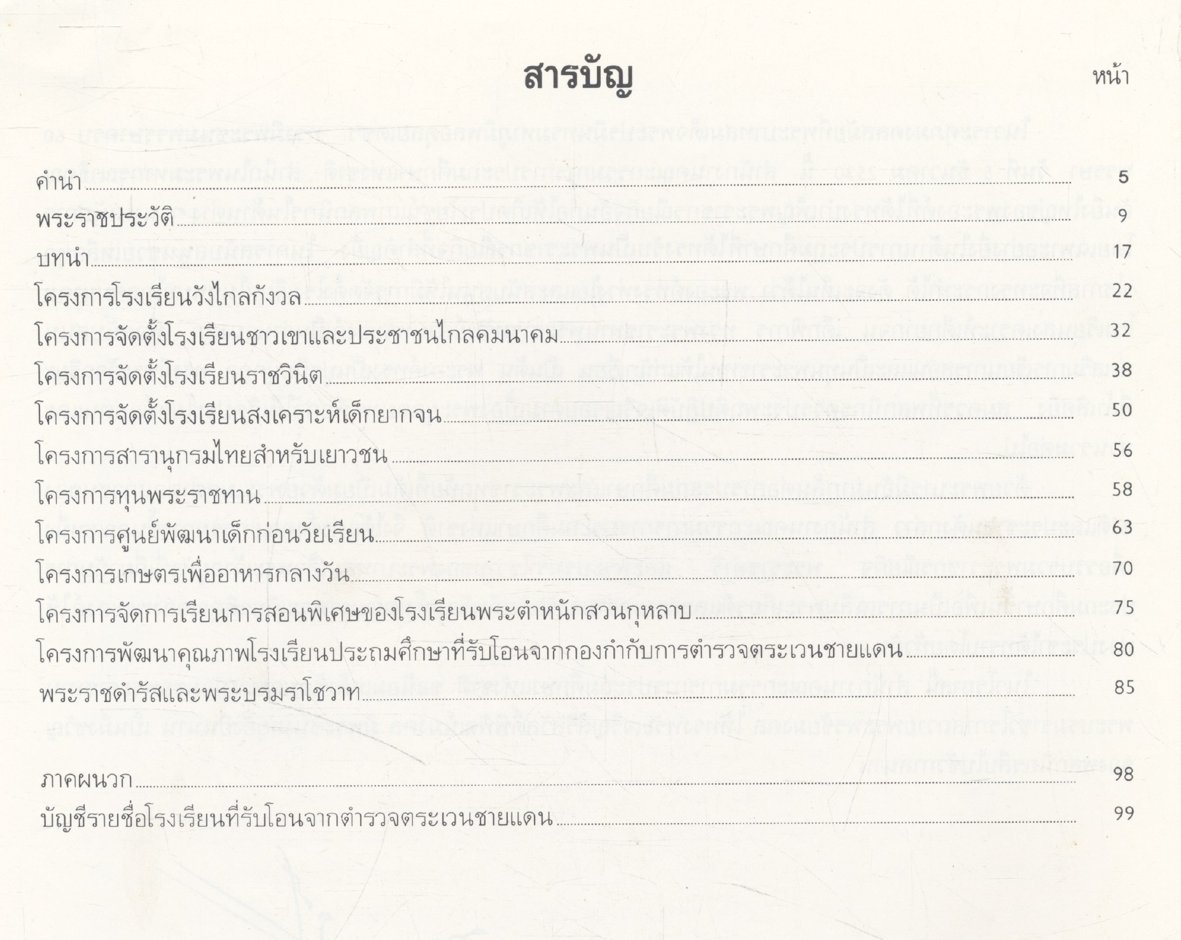 สารบัญ
หน้า
คำนำ 5
พระราชประวัติ 9
บทนำ 17
โครงการโรงเรียนวังไกลกังวล 22
โครงการจัดตั้งโรงเรียนชาวเขาและประชาชนไกลคมนาคม 32
โครงการจัดตั้งโรงเรียนราชวินิต 38
โครงการจัดตั้งโรงเรียนสงเคราะห์เด็กยากจน 50
โครงการสารานุกรมไทยสำหรับเยาวชน 56
โครงการทุนพระราชทาน 58
โครงการศูนย์พัฒนาเด็กก่อนวัยเรียน 63
โครงการเกษตรเพื่ออาหารกลางวัน 70
โครงการจัดการเรียนการสอนพิเศษของโรงเรียนพระตำหนักสวนกุหลาบ 75
โครงการพัฒนาคุณภาพโรงเรียนประถมศึกษาที่รับโอนจากกองกำกับการตำรวจตระเวนชายแดน 80
พระราชดำรัสและพระบรมราโชวาท 85
ภาคผนวก 98
บัญชีรายชื่อโรงเรียนที่รับโอนจากตำรวจตระเวนชายแดน 99